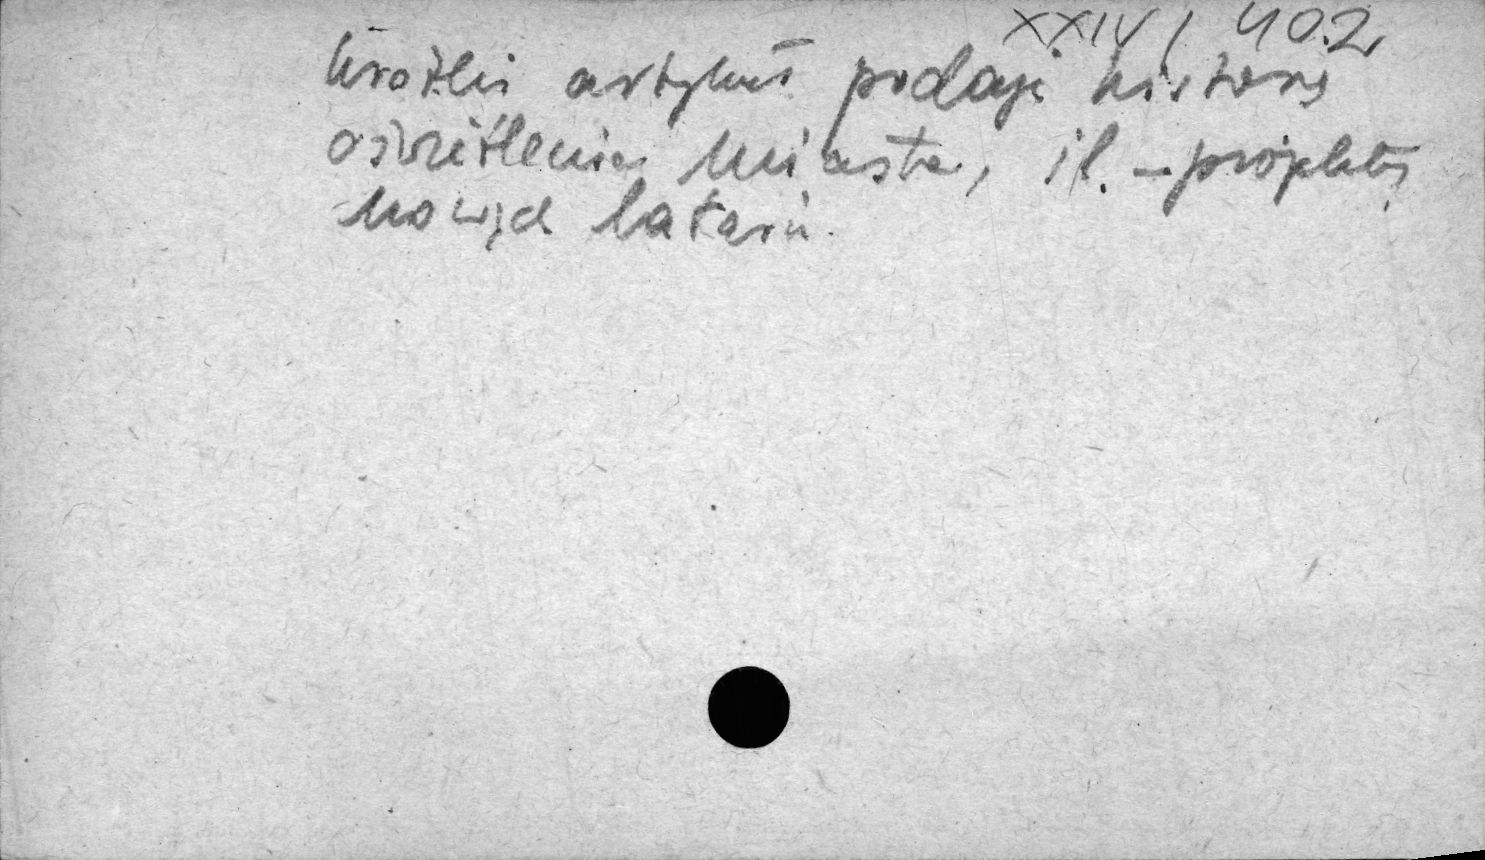 XXIV / 402
Krótki artykuł podaje historię
oświetlenia miasta, il. – projekty
nowych latarń.